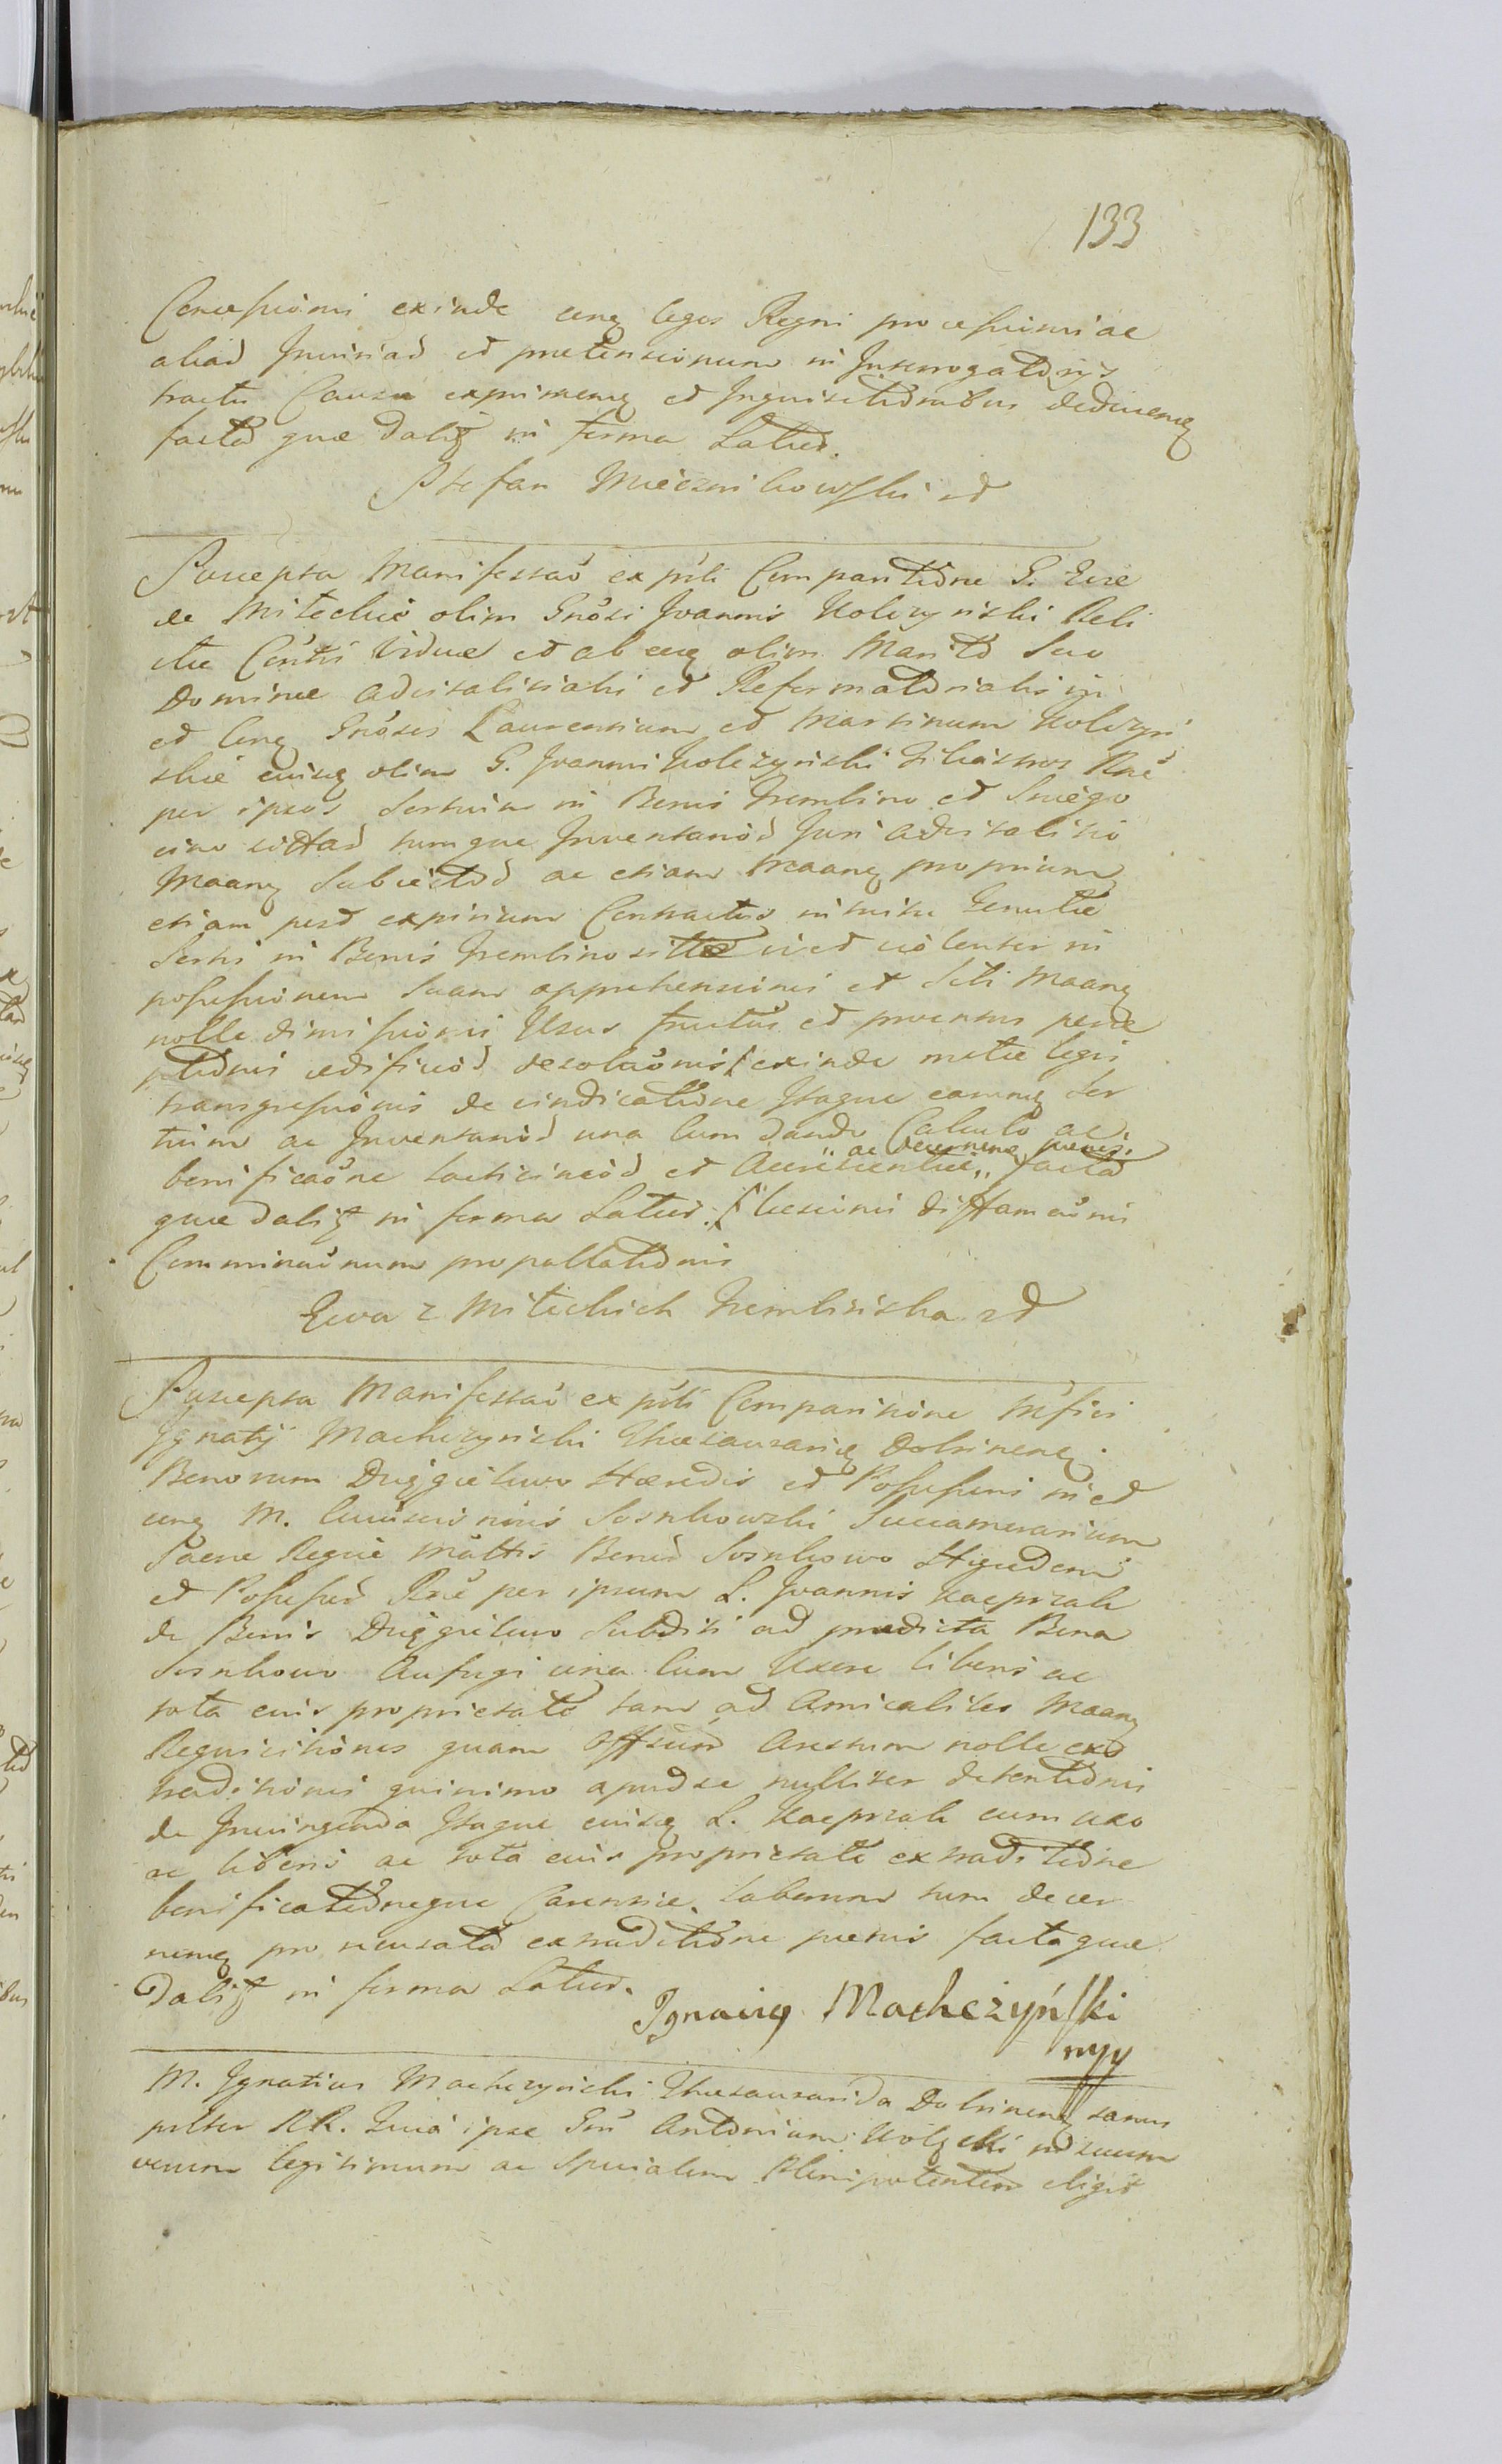 133
Concussionni exinde cenq leges Regni processivni ac
aliad Iniuriad et pretensionum in Interrogatorijs
tractu Causa exprimenq et Inquisitionibus deducenq
factad quae daliq in forma Latiud.
Stefan Miecznikowski et
Suscepta Manifestao ex pṅti Comparitione G. Evae
de Miteckie olim Gnosi Joannis Kolczynski Reli
ctae Contti Viduae et ab eoq olim Marito Suo
Dominae advitalitiali et Reformatorialis in
et cenq Gnosos Laurentium et Martinum Kolczyn
skie eiusq olim G. Joanni Kolczynski Filiastros Rne
per ipsos Sortium in Bonis Trembino et Sniego
cino sittad tumque Inventariod Juri advitalitio
Maanq Subiectod ac etiam Maanq proprium
etiam post expirium Contractus intuitu Genutae
Sorti in Bonis Trembino sittae vi et violenter in
possessionem Suam apprehensionis et Sibi Maanq
nolle dimissionis Usus fructus et proventus perce
ptionis aedificiod desolaonis exinde metae legis
transgressionis de vindicatione Itaque earunq Sor
tium ac Inventariod una Cum dando Calculo ac
ac decernenq poenis.
bonificaone lacticiniod et Accrescentiae,, factad
quae daliq in forma Latiud. laesionis diffamaonis
Comminaonum propallationis
Ewa z Miteckich Trembinska et
Suscepta Manifestao ex pṅti Comparitione Mfici
Ignatij Machczynski Thesaurariq Dobrinenq
Bonorum Dzięgielewo Haeredis et Possessoris in et
cenq M. Sosnkowski Succamerarium
Sacrae Regiae Mattis Bonod Sosnkowo Haeredem
et Possessod Rne per ipsum L. Joannis Kacprzak
de Bonis Dzięgielewo Subditi ad praedicta Bona
Sosnkowo Aufugi una Cum Uxore liberis ac
tota eius proprietate tam ad Amicabiles Maanq
Requisitiones quam Officiod Arestum nolle ex
traditionis quinimo apud se nulliter detentionis
de Iniungenda Itaque eiusq L. Kacprzak cum uxo
ac liberis ac tota eius proprietate extraditione
bonificationeque Carentiae Laborum tum decer
nenq pro recusata extraditione poenis facta quae
daliq in forma Latiud.
Ignacy Machczyński
mpp
M. Ignatius Machczynski Thesaurarida Dobrinenq sanus
pulter RR. Quia ipse Gn Antonium in suum
verum legitimum ac Specialem Plenipotentem eligit